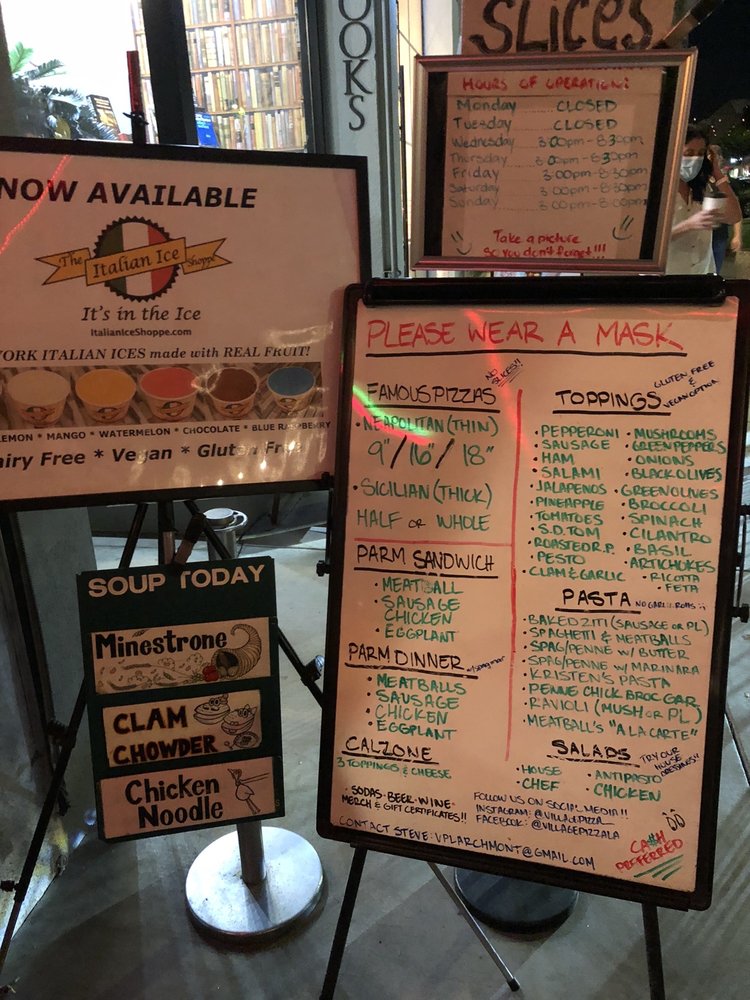 OOKS
SLICES
HOURS OF OPERATION:
Monday ........ CLOSED
Tuesday ........ CLOSED
Wednesday ..... 3:00pm-8:30pm
Thursday ...... 3:00pm-8:30pm
Friday ........ 3:00pm-8:30pm
Saturday ...... 3:00pm-8:30pm
Sunday ........ 3:00pm-8:00pm
Take a picture
so you don't forget!!!
NOW AVAILABLE
The Italian Ice Shoppe
It's in the Ice
ItalianIceShoppe.com
YORK ITALIAN ICES made with REAL FRUIT!
LEMON * MANGO * WATERMELON * CHOCOLATE * BLUE RASPBERRY
airy Free * Vegan * Gluten Free
SOUP TODAY
Minestrone
CLAM
CHOWDER
Chicken
Noodle
PLEASE WEAR A MASK
FAMOUS PIZZAS
NO SLICES!!
• NEAPOLITAN (THIN)
9"/16"/18"
• SICILIAN (THICK)
HALF OR WHOLE
PARM SANDWICH
• MEATBALL
• SAUSAGE
CHICKEN
• EGGPLANT
PARM DINNER
• MEATBALLS
• SAUSAGE
• CHICKEN
• EGGPLANT
CALZONE
3 TOPPINGS & CHEESE
TOPPINGS
GLUTEN FREE
&
VEGAN OPTION
• PEPPERONI
• SAUSAGE
• HAM
• SALAMI
• JALAPENOS
• PINEAPPLE
• TOMATOES
• S.D. TOM
• ROASTED R.P.
• PESTO
• CLAM & GARLIC
• MUSHROOMS
• GREEN PEPPERS
• ONIONS
• BLACK OLIVES
• GREEN OLIVES
• BROCCOLI
• SPINACH
• CILANTRO
• BASIL
• ARTICHOKES
• RICOTTA
• FETA
PASTA NO GARLIC ROLLS
• BAKED ZITI (SAUSAGE OR PL)
• SPAGHETTI & MEATBALLS
• SPAG/PENNE W/ BUTTER
• SPAG/PENNE W/ MARINARA
• KRISTEN'S PASTA
• PENNE CHICK BROC GAR
• RAVIOLI (MUSH OR PL)
• MEATBALL'S "A LA CARTE"
SALADS
TRY OUR
HOUSE
DRESSINGS!!
• HOUSE
• CHEF
• ANTIPASTO
• CHICKEN
• SODAS • BEER • WINE •
MERCH & GIFT CERTIFICATES!!
FOLLOW US ON SOCIAL MEDIA!!
INSTAGRAM: @VILLAGEPIZZA_
FACEBOOK: @VILLAGEPIZZALA
CONTACT STEVE: VPLARCHMONT@GMAIL.COM
CA$H
PREFERRED